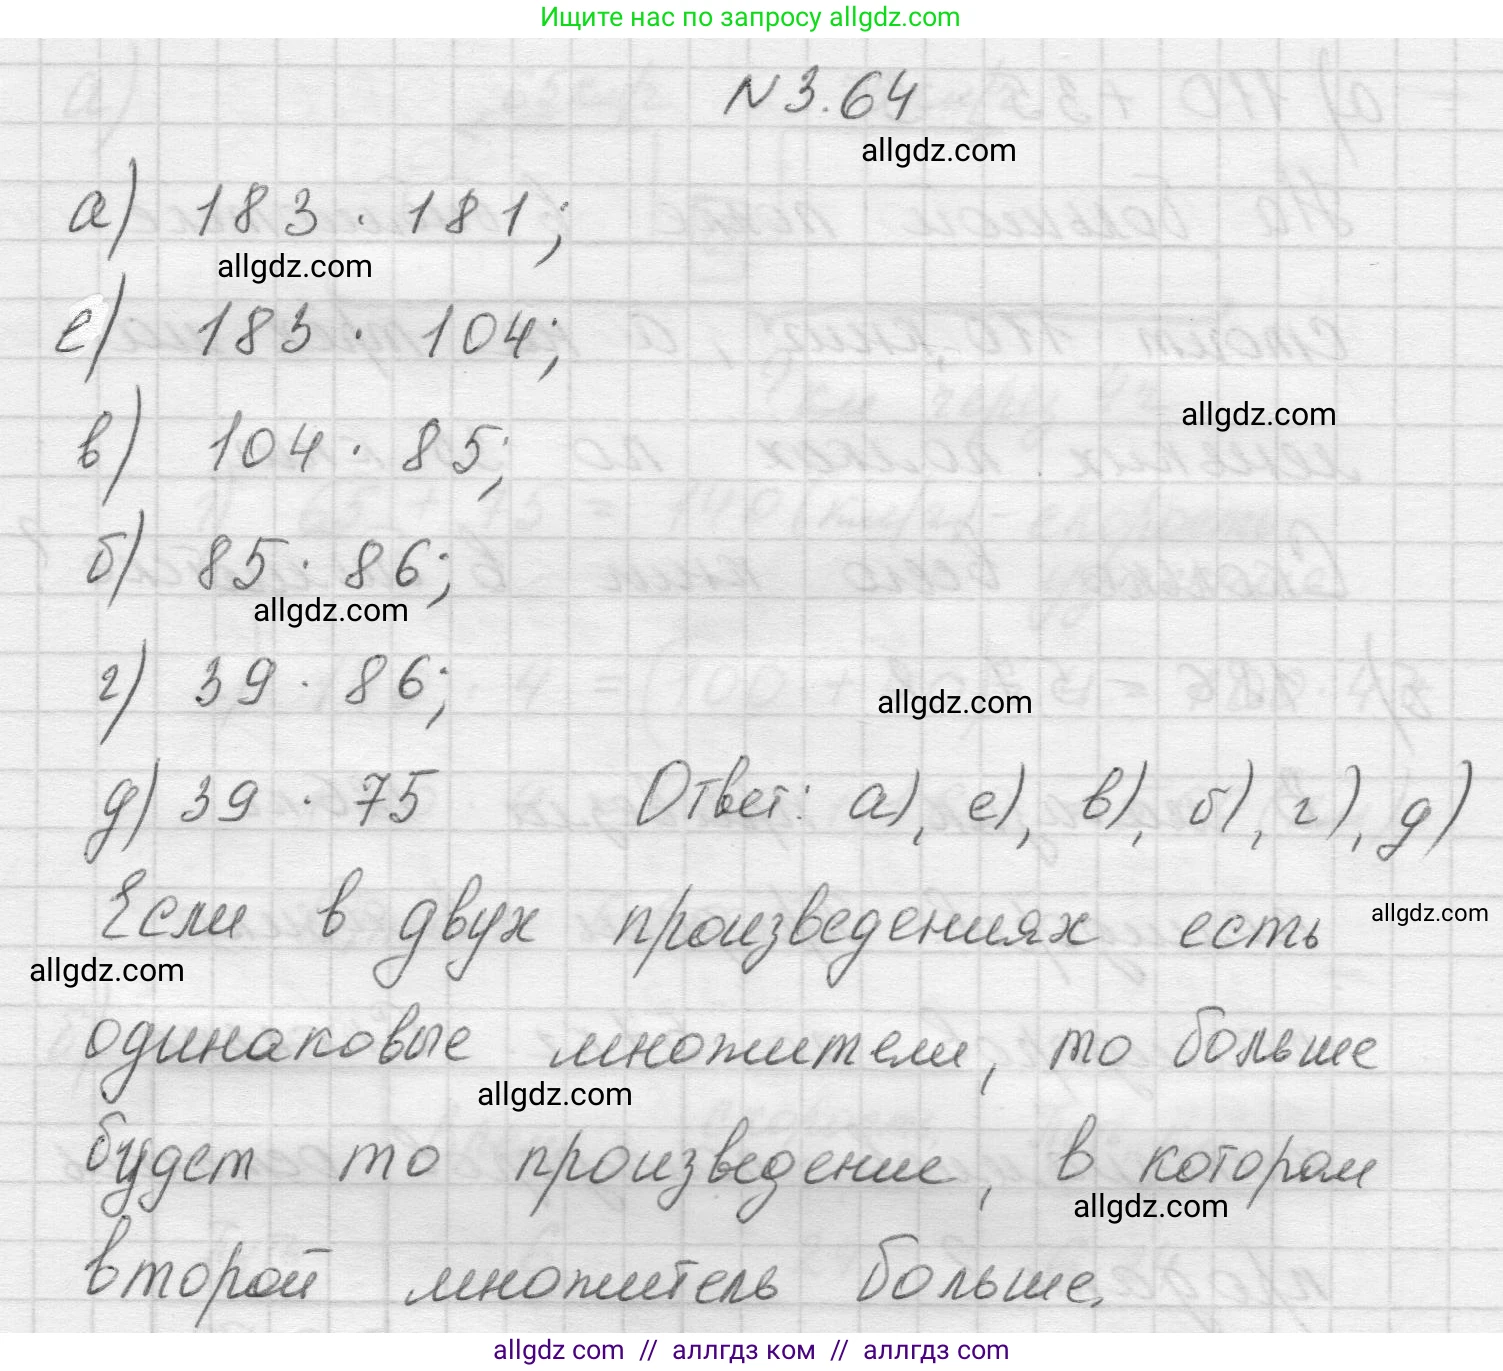 Ищите нас по запросу allgdz.com
N 3.64
allgdz.com
а) 183 · 181;
allgdz.com
е) 183 · 104;
allgdz.com
в) 104 · 85;
б) 85 · 86;
allgdz.com
г) 39 · 86;
allgdz.com
д) 39 · 75 Ответ: а), е), в), б), г), д)
Если в двух произведениях есть
allgdz.com
allgdz.com
одинаковые множители, то больше
allgdz.com
будет то произведение, в котором
allgdz.com
второй множитель больше.
allgdz com // аллгдз ком // аллгдз com